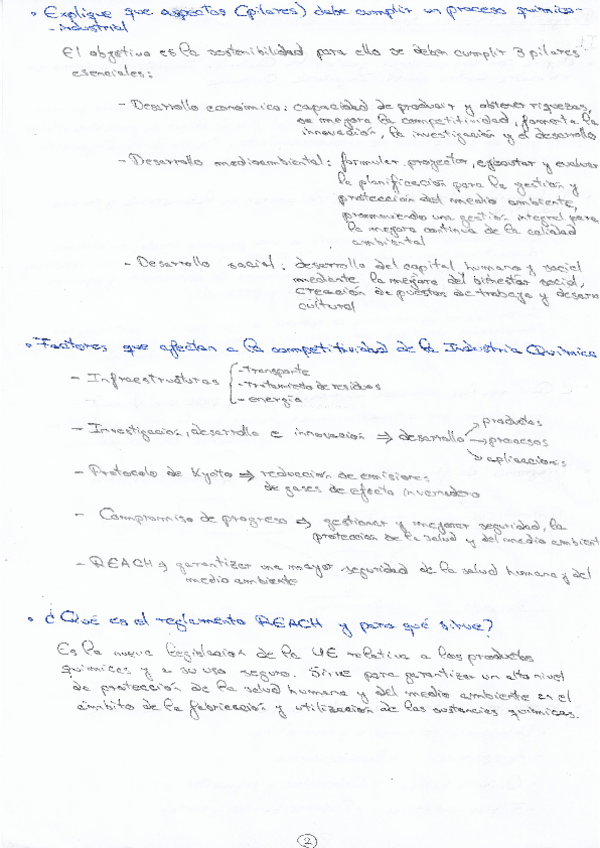 • Explique que aspectos (pilares) debe cumplir un proceso químico-
-industrial
El objetivo es la sostenibilidad para ello se deben cumplir 3 pilares
esenciales:
- Desarrollo económico: capacidad de producir y obtener riquezas,
se mejora la competitividad, fomenta la
innovación, la investigación y el desarrollo
- Desarrollo medioambiental: formular, proyectar, ejecutar y evaluar
la planificación para la gestión y
protección del medio ambiente,
promoviendo una gestión integral para
la mejora continua de la calidad
ambiental
- Desarrollo social: desarrollo del capital humano y social
mediante la mejora del bienestar social,
creación de puestos de trabajo y desarro
cultural
• Factores que afectan a la competitividad de la Industria Química
- Infraestructuras
- transporte
- tratamiento de residuos
- energía
- Investigación, desarrollo e innovación ⇒ desarrollo
→ productos
→ procesos
→ aplicaciones
- Protocolo de Kyoto ⇒ reducción de emisiones
de gases de efecto invernadero
- Compromiso de progreso ⇒ gestionar y mejorar seguridad, la
protección de la salud y del medio ambient
- REACH ⇒ garantizar una mayor seguridad de la salud humana y del
medio ambiente
• ¿Qué es el reglamento REACH y para qué sirve?
Es la nueva legislación de la UE relativa a los productos
químicos y a su uso seguro. Sirve para garantizar un alto nivel
de protección de la salud humana y del medio ambiente en el
ámbito de la fabricación y utilización de las sustancias químicas.
2